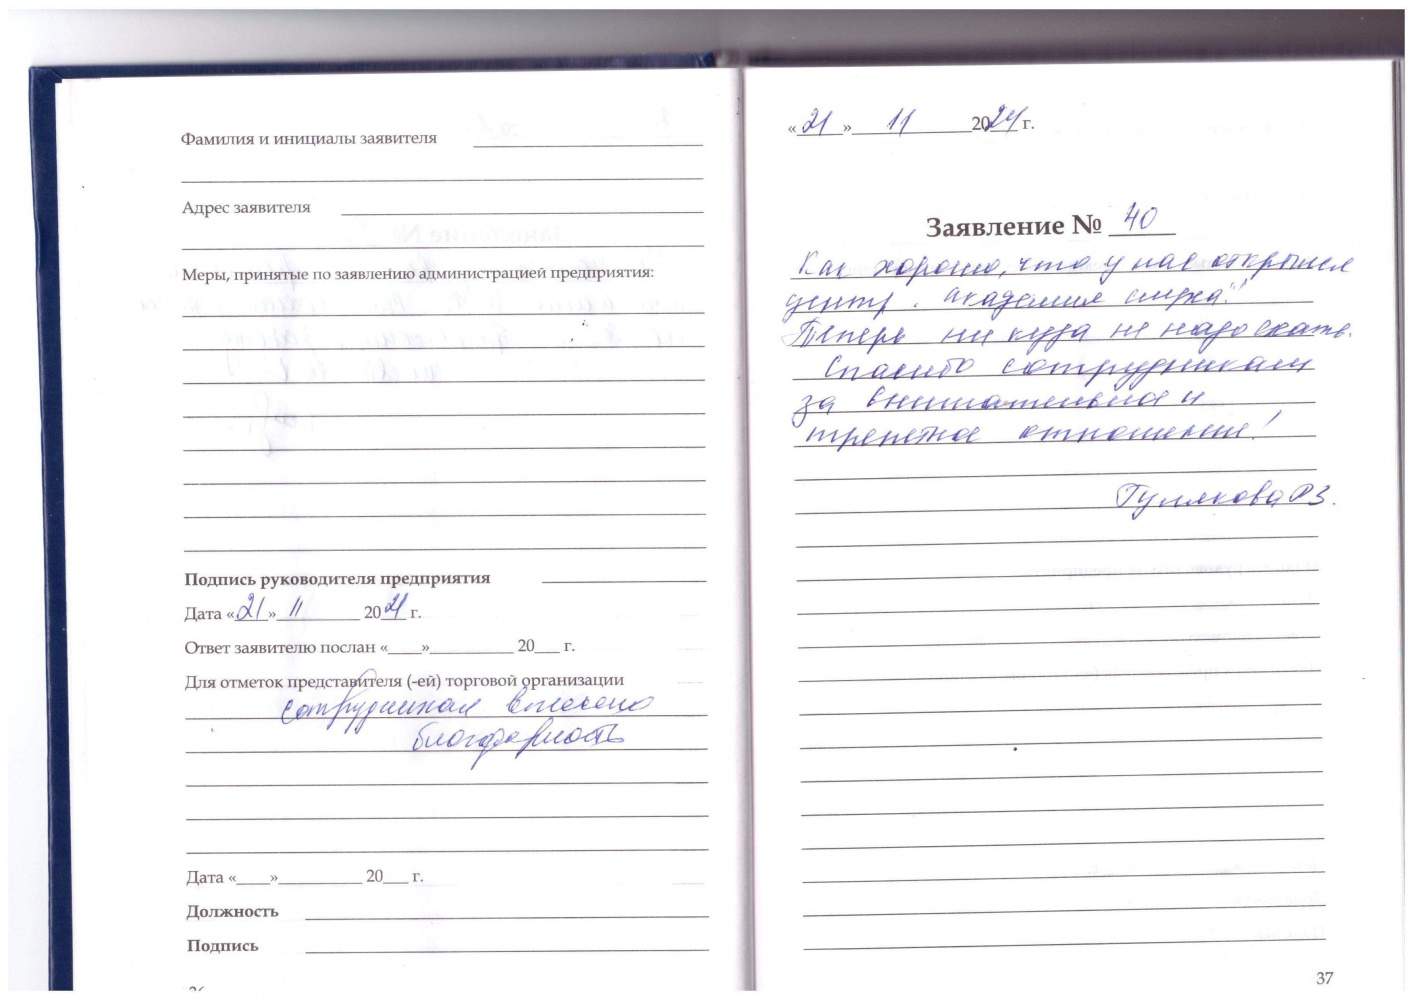 Фамилия и инициалы заявителя
Адрес заявителя
Меры, принятые по заявлению администрацией предприятия:
Подпись руководителя предприятия
Дата «21» 11 2021 г.
Ответ заявителю послан «____»__________ 20___ г.
Для отметок представителя (-ей) торговой организации
сотрудникам внесено
благодарность
Дата «____»__________ 20___ г.
Должность
Подпись
«21» 11 2021 г.
Заявление № 40
Как хорошо, что у нас открылся
центр "Академия слуха".
Теперь ни куда не надо ехать.
Спасибо сотрудникам
за внимательное и
трепетное отношение!
37